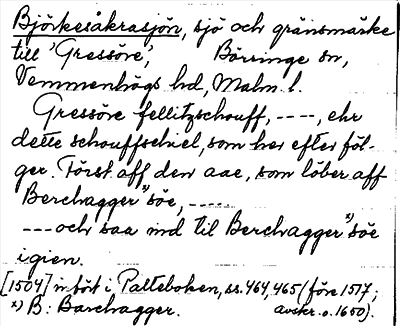 Björkesåkrasjön, sjö och gränsmärke
till 'Gressöre', Börringe sn,
Vemmenhögs hd, Malm. l.
Gressöre fellitzschouff, ----, ehr
dette schouffschiel, som her efter föl-
ger. Först aff den aae, som löber aff
Berchagger x) söe, -----
--- och saa ind til Berchagger x) söe
igien.
[1504] inført i Palteboken, ss. 464, 465 (före 1517;
x) B: Barchagger. avskr. o. 1650).